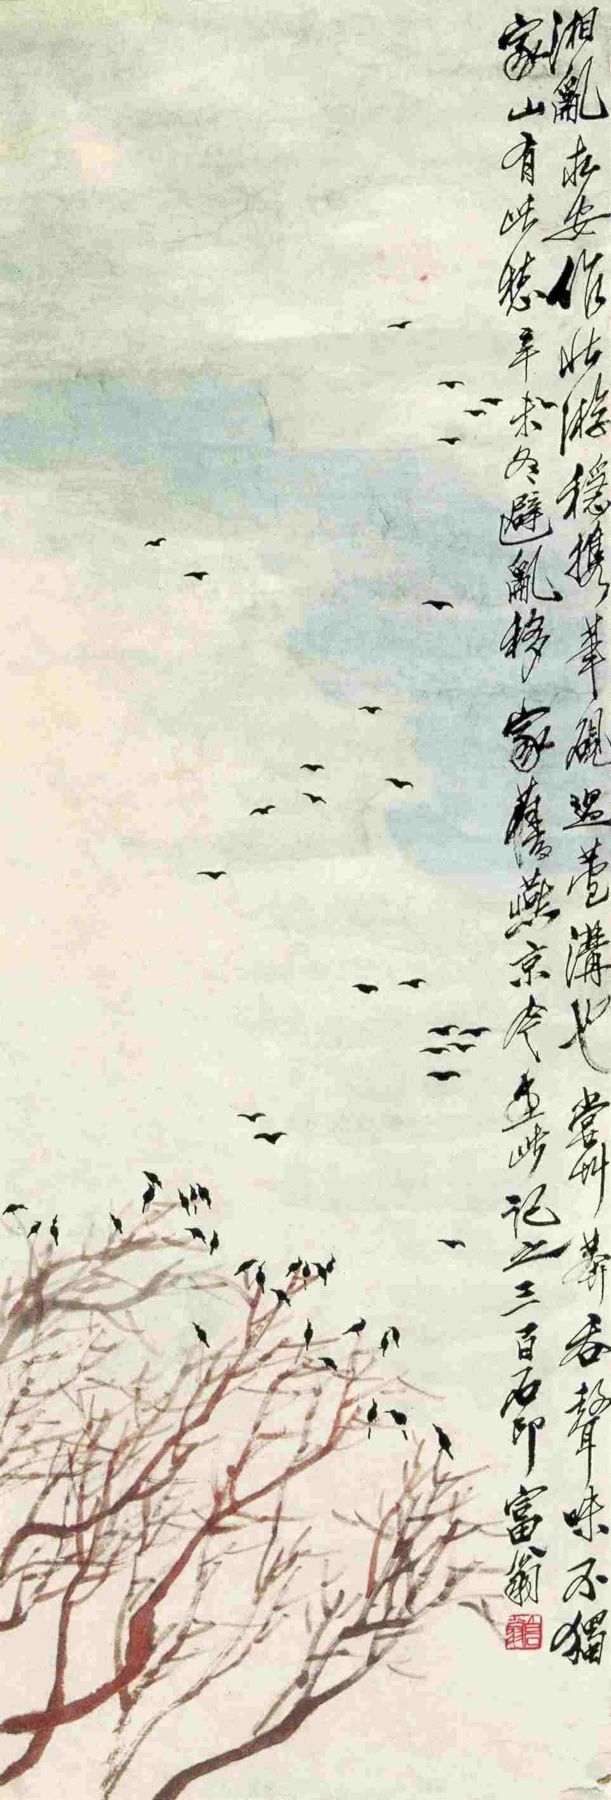 湘亂求安作北游穩携筆硯過蘆溝也嘗艸莽吞聲味不獨
家山有此愁辛未冬避亂移家舊燕京今畫此記之三百石印富翁